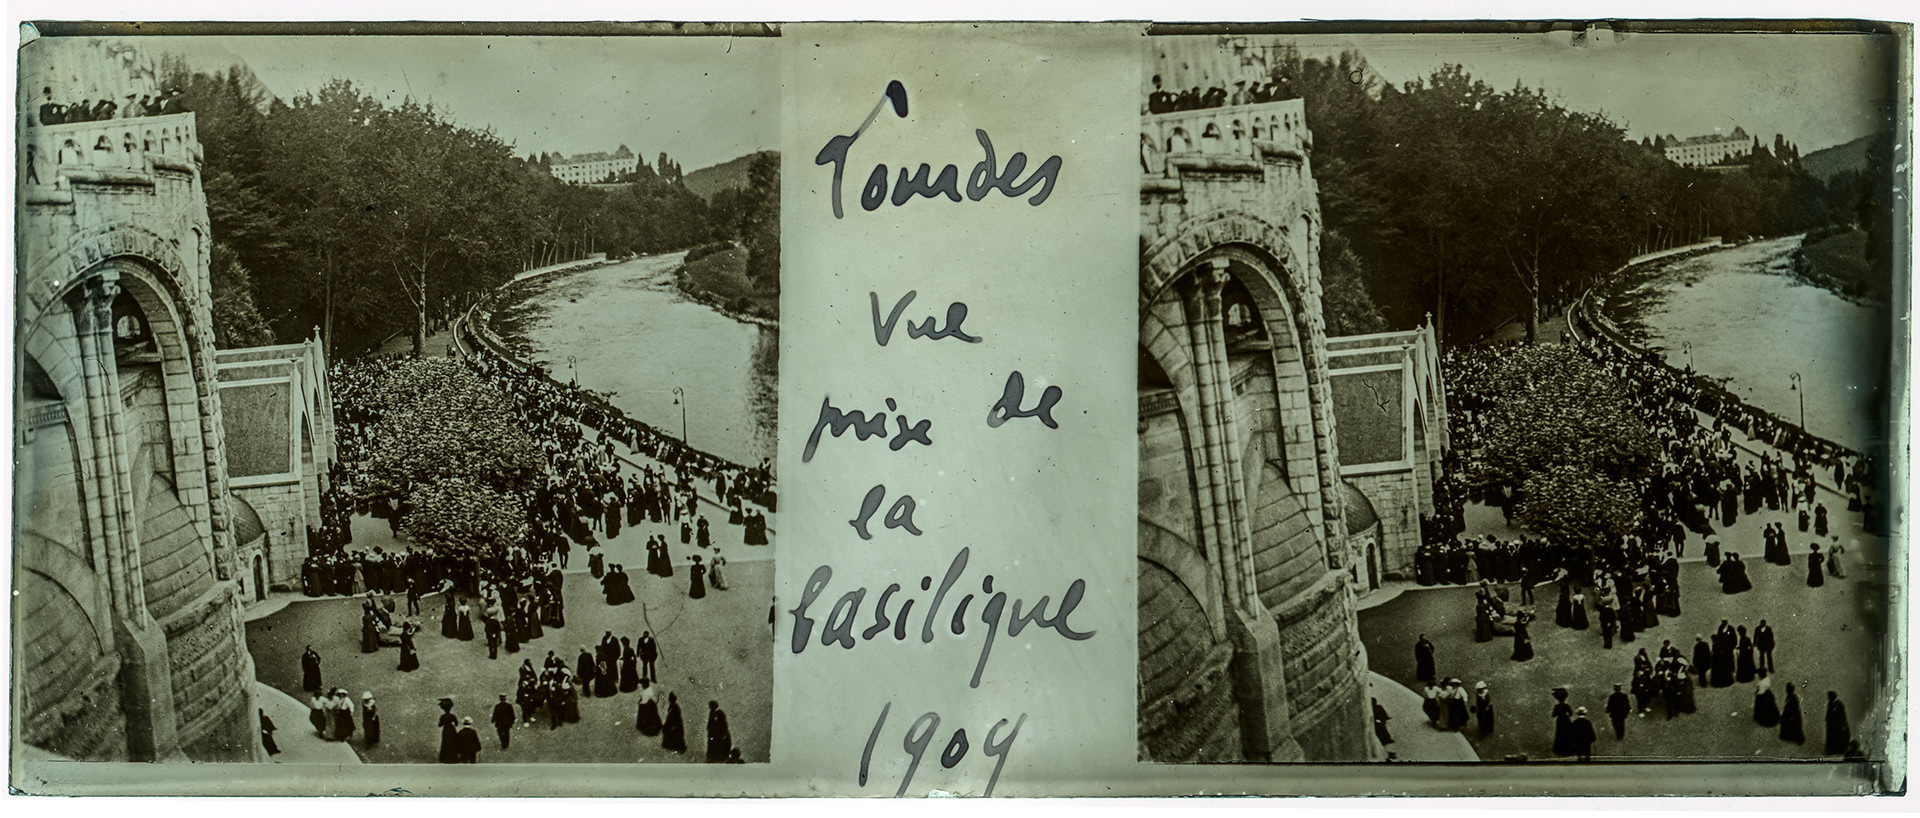 Lourdes
Vue
prise de
la
basilique
1909